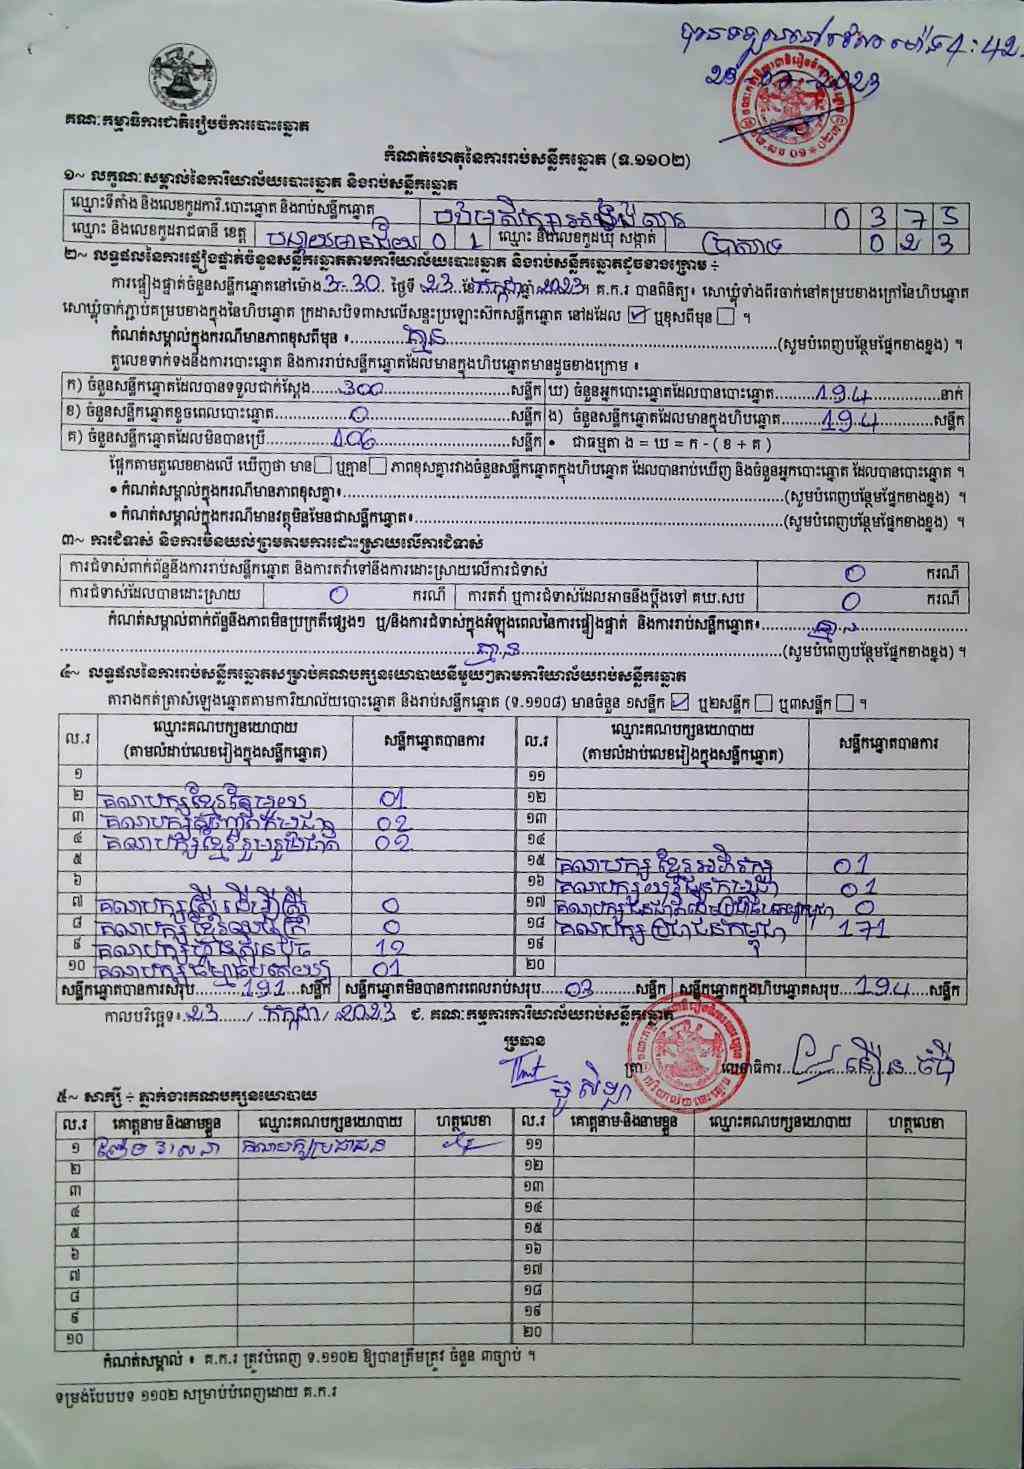 បានទទួលនៅវេលាម៉ោង 4:42
23-07-2023
គណៈកម្មាធិការជាតិរៀបចំការបោះឆ្នោត
កំណត់ហេតុនៃការរាប់សន្លឹកឆ្នោត (ទ.១១០២)
១~ លក្ខណៈសម្គាល់នៃការិយាល័យបោះឆ្នោត និងរាប់សន្លឹកឆ្នោត
ឈ្មោះទីតាំង និងលេខកូដការិ.បោះឆ្នោត និងរាប់សន្លឹកឆ្នោត 0 3 7 5
ឈ្មោះ និងលេខកូដរាជធានី ខេត្ត បន្ទាយមានជ័យ 0 1 ឈ្មោះ និងលេខកូដឃុំ សង្កាត់ 0 2 3
២~ លទ្ធផលនៃការផ្ទៀងផ្ទាត់ចំនួនសន្លឹកឆ្នោតតាមការិយាល័យបោះឆ្នោត និងរាប់សន្លឹកឆ្នោតដូចខាងក្រោម ÷
ការផ្ទៀងផ្ទាត់ចំនួនសន្លឹកឆ្នោតនៅម៉ោង 3-30 ថ្ងៃទី 23 ខែ កក្កដា ឆ្នាំ 2023។ គ.ក.រ បានពិនិត្យ៖ សោឃ្លុំទាំងពីរចាក់នៅគម្របខាងក្រៅនៃហិបឆ្នោត
សោឃ្លុំចាក់ភ្ជាប់គម្របខាងក្នុងនៃហិបឆ្នោត ក្រដាសបិទពាសលើសន្ទះប្រឡោះស៊កសន្លឹកឆ្នោត នៅដដែល ☑ ឬខុសពីមុន ☐ ។
កំណត់សម្គាល់ក្នុងករណីមានភាពខុសពីមុន ៖ គ្មាន (សូមបំពេញបន្ថែមផ្នែកខាងខ្នង) ។
តួលេខទាក់ទងនឹងការបោះឆ្នោត និងការរាប់សន្លឹកឆ្នោតដែលមានក្នុងហិបឆ្នោតមានដូចខាងក្រោម ៖
ក) ចំនួនសន្លឹកឆ្នោតដែលបានទទួលជាក់ស្តែង 300 សន្លឹក ឃ) ចំនួនអ្នកបោះឆ្នោតដែលបានបោះឆ្នោត 194 នាក់
ខ) ចំនួនសន្លឹកឆ្នោតខូចពេលបោះឆ្នោត 0 សន្លឹក ង) ចំនួនសន្លឹកឆ្នោតដែលមានក្នុងហិបឆ្នោត 194 សន្លឹក
គ) ចំនួនសន្លឹកឆ្នោតដែលមិនបានប្រើ 106 សន្លឹក • ជាធម្មតា ង = ឃ = ក - ( ខ + គ )
ផ្អែកតាមតួលេខខាងលើ ឃើញថា មាន ☐ ឬគ្មាន ☐ ភាពខុសគ្នារវាងចំនួនសន្លឹកឆ្នោតក្នុងហិបឆ្នោត ដែលបានរាប់ឃើញ និងចំនួនអ្នកបោះឆ្នោត ដែលបានបោះឆ្នោត ។
• កំណត់សម្គាល់ក្នុងករណីមានភាពខុសគ្នា៖ (សូមបំពេញបន្ថែមផ្នែកខាងខ្នង) ។
• កំណត់សម្គាល់ក្នុងករណីមានវត្ថុមិនមែនជាសន្លឹកឆ្នោត៖ (សូមបំពេញបន្ថែមផ្នែកខាងខ្នង) ។
៣~ ការជំទាស់ និងការមិនយល់ព្រមតាមការដោះស្រាយលើការជំទាស់
ការជំទាស់ពាក់ព័ន្ធនឹងការរាប់សន្លឹកឆ្នោត និងការតវ៉ាទៅនឹងការដោះស្រាយលើការជំទាស់ 0 ករណី
ការជំទាស់ដែលបានដោះស្រាយ 0 ករណី ការតវ៉ា ឬការជំទាស់ដែលអាចនឹងប្តឹងទៅ គឃ.សប 0 ករណី
កំណត់សម្គាល់ពាក់ព័ន្ធនឹងភាពមិនប្រក្រតីផ្សេងៗ ឬ/និងការជំទាស់ក្នុងអំឡុងពេលនៃការផ្ទៀងផ្ទាត់ និងការរាប់សន្លឹកឆ្នោត៖ គ្មាន
គ្មាន (សូមបំពេញបន្ថែមផ្នែកខាងខ្នង) ។
៤~ លទ្ធផលនៃការរាប់សន្លឹកឆ្នោតសម្រាប់គណបក្សនយោបាយនីមួយៗតាមការិយាល័យរាប់សន្លឹកឆ្នោត
តារាងកត់ត្រាសំឡេងឆ្នោតតាមការិយាល័យបោះឆ្នោត និងរាប់សន្លឹកឆ្នោត (ទ.១១០៨) មានចំនួន ១សន្លឹក ☑ ឬ២សន្លឹក ☐ ឬ៣សន្លឹក ☐ ។
ល.រ ឈ្មោះគណបក្សនយោបាយ (តាមលំដាប់លេខរៀងក្នុងសន្លឹកឆ្នោត) សន្លឹកឆ្នោតបានការ ល.រ ឈ្មោះគណបក្សនយោបាយ (តាមលំដាប់លេខរៀងក្នុងសន្លឹកឆ្នោត) សន្លឹកឆ្នោតបានការ
១ ១១
២ គណបក្សខ្មែរតែមួយ 01 ១២
៣ 02 ១៣
៤ គណបក្សខ្មែររួបរួមជាតិ 02 ១៤
៥ ១៥ គណបក្សខ្មែរអភិរក្ស 01
៦ ១៦ គណបក្សយុវជនកម្ពុជា 01
៧ គណបក្សស្ត្រីដើម្បីស្ត្រី 0 ១៧ 0
៨ 0 ១៨ គណបក្សប្រជាជនកម្ពុជា 171
៩ គណបក្សហ្វ៊ុនស៊ិនប៉ិច 12 ១៩
១០ គណបក្សធម្មាធិបតេយ្យ 01 ២០
សន្លឹកឆ្នោតបានការសរុប 191 សន្លឹក សន្លឹកឆ្នោតមិនបានការពេលរាប់សរុប 03 សន្លឹក សន្លឹកឆ្នោតក្នុងហិបឆ្នោតសរុប 194 សន្លឹក
កាលបរិច្ឆេទ៖ 23 / កក្កដា / 2023 ជ. គណៈកម្មការការិយាល័យរាប់សន្លឹកឆ្នោត
ប្រធាន
ត្រា លេខាធិការ
៥~ សាក្សី ÷ ភ្នាក់ងារគណបក្សនយោបាយ
ល.រ គោត្តនាម និងនាមខ្លួន ឈ្មោះគណបក្សនយោបាយ ហត្ថលេខា ល.រ គោត្តនាម-និងនាមខ្លួន ឈ្មោះគណបក្សនយោបាយ ហត្ថលេខា
១ គណបក្សប្រជាជន ១១
២ ១២
៣ ១៣
៤ ១៤
៥ ១៥
៦ ១៦
៧ ១៧
៨ ១៨
៩ ១៩
១០ ២០
កំណត់សម្គាល់ ៖ គ.ក.រ ត្រូវបំពេញ ទ.១១០២ ឱ្យបានត្រឹមត្រូវ ចំនួន ៣ច្បាប់ ។
ទម្រង់បែបបទ ១១០២ សម្រាប់បំពេញដោយ គ.ក.រ